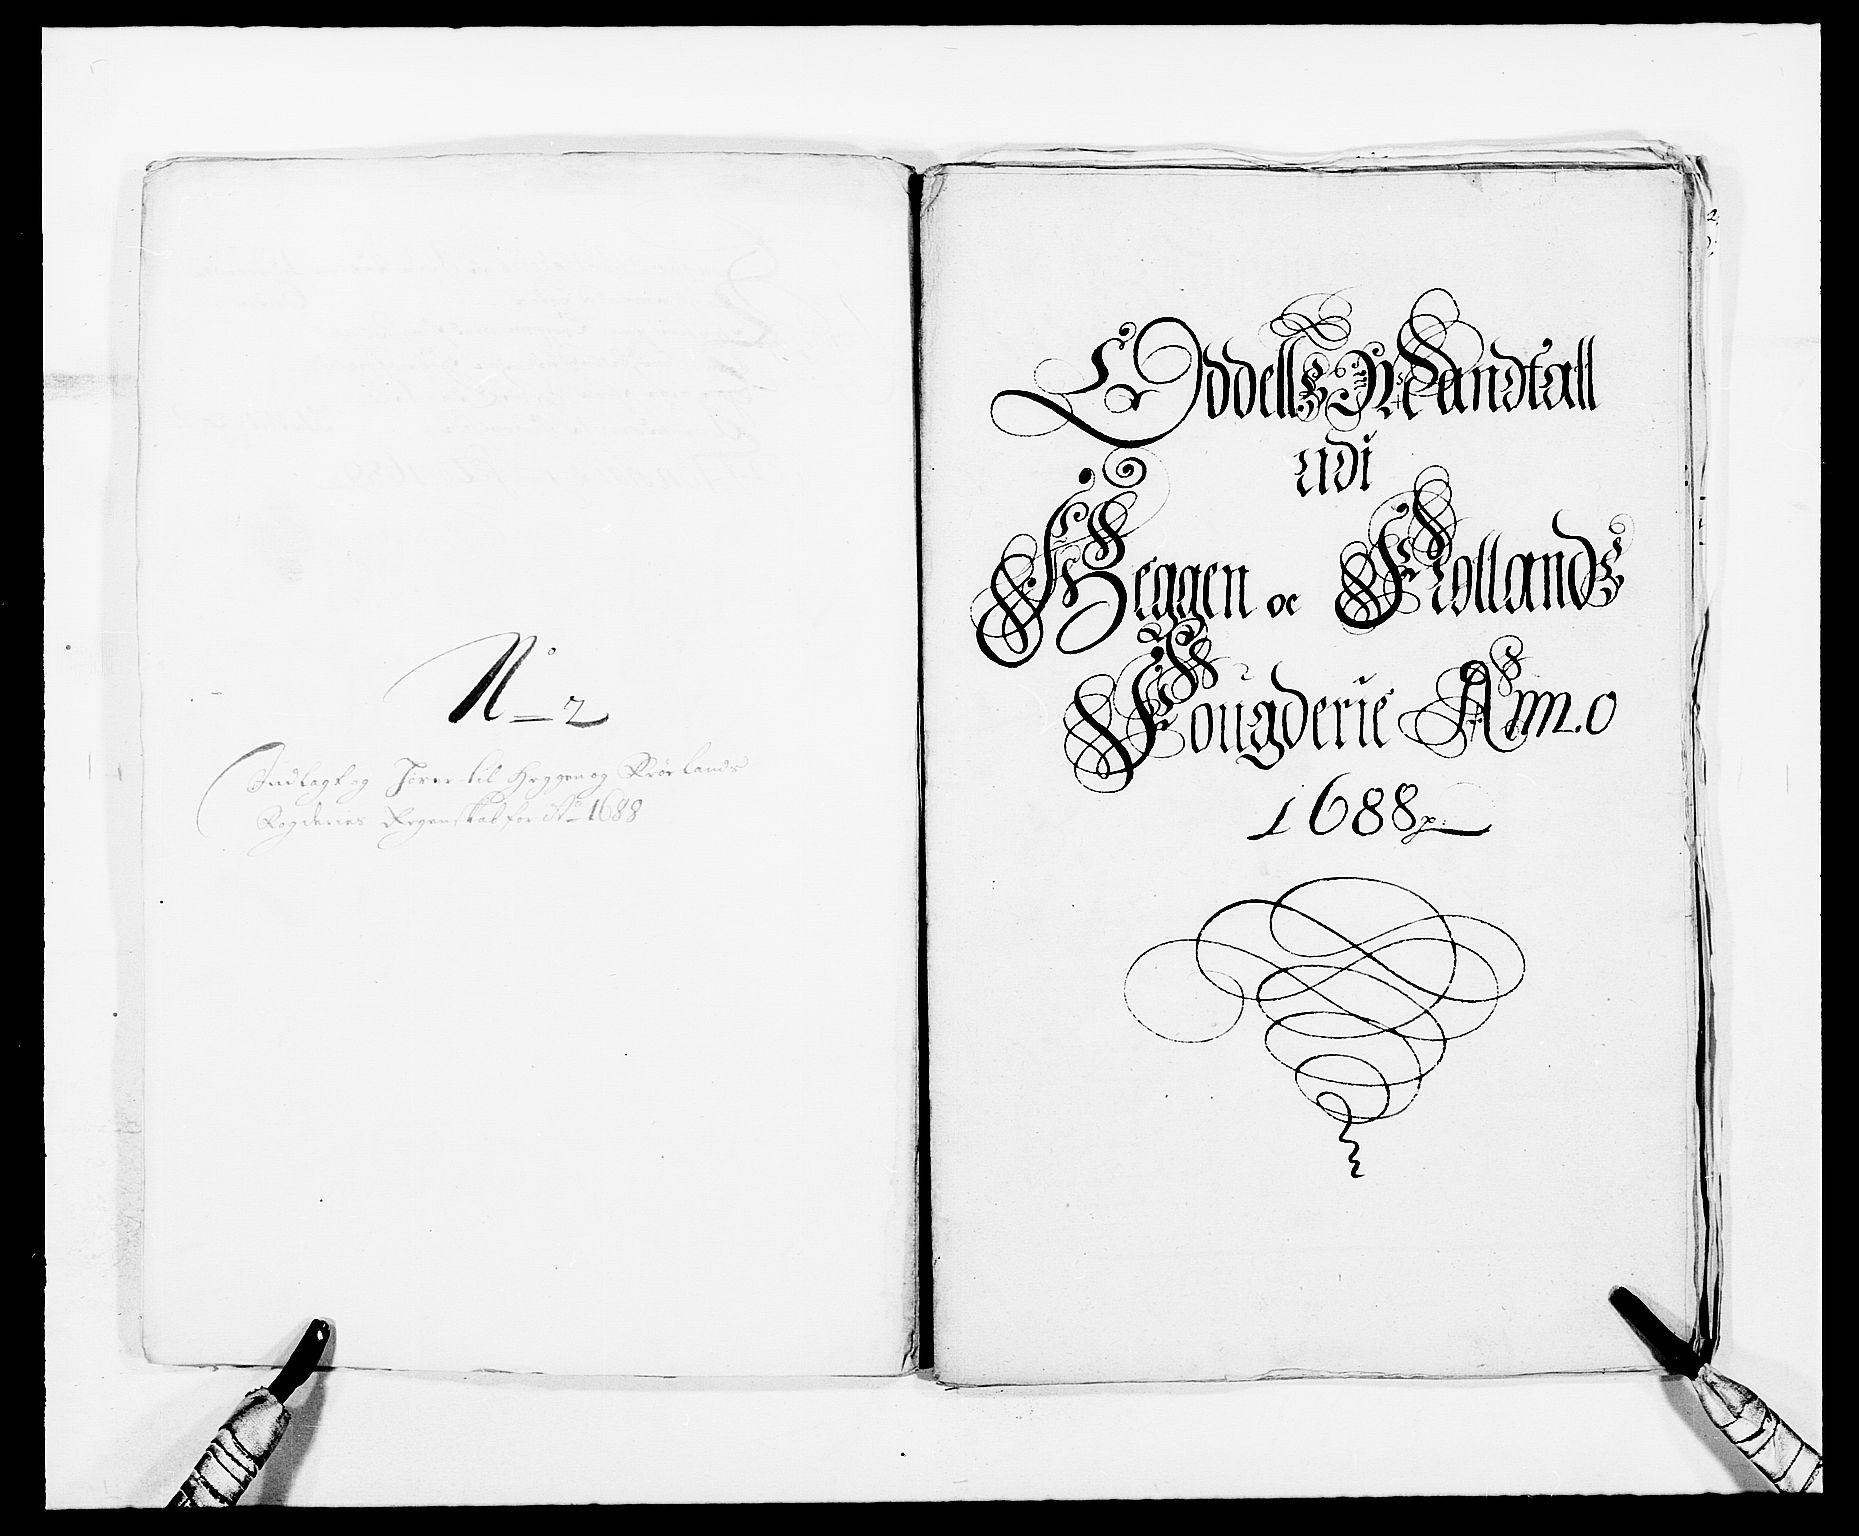 No 2
Indlagt og Hører til Heggen og Frølands
Fogderies Regenskab for Ao 1688
Oddells Mandtall
udi
Heggen oc Frøllands
Fougderie Anno
1688